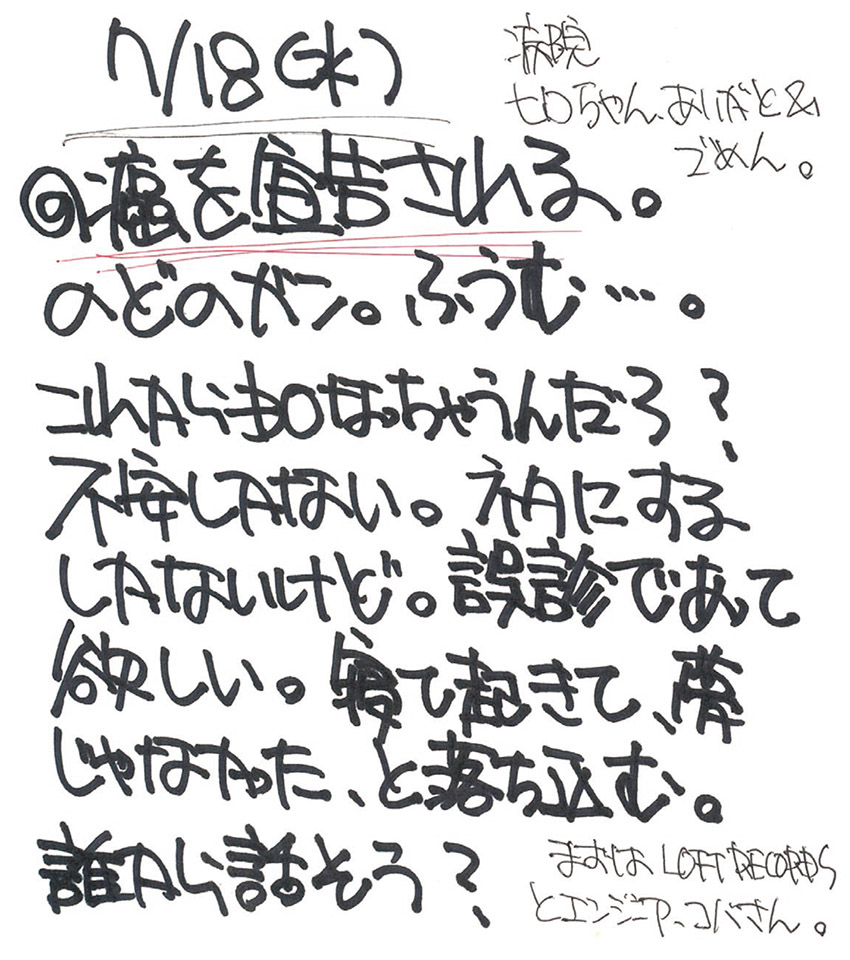 7/18(水)
病院
ヒロちゃん、ありがと&
ごめん。
◎癌を宣告される。
のどのガン。ふうむ…。
これからどうなっちゃうんだろ?
不悔しかない。ネタにする
しかないけど。誤診であって
欲しい。寝て起きて、夢
じゃなかった、と落ち込む。
誰から話そう?
まずは LOFT RECORDS
とエンジニア、コバさん。